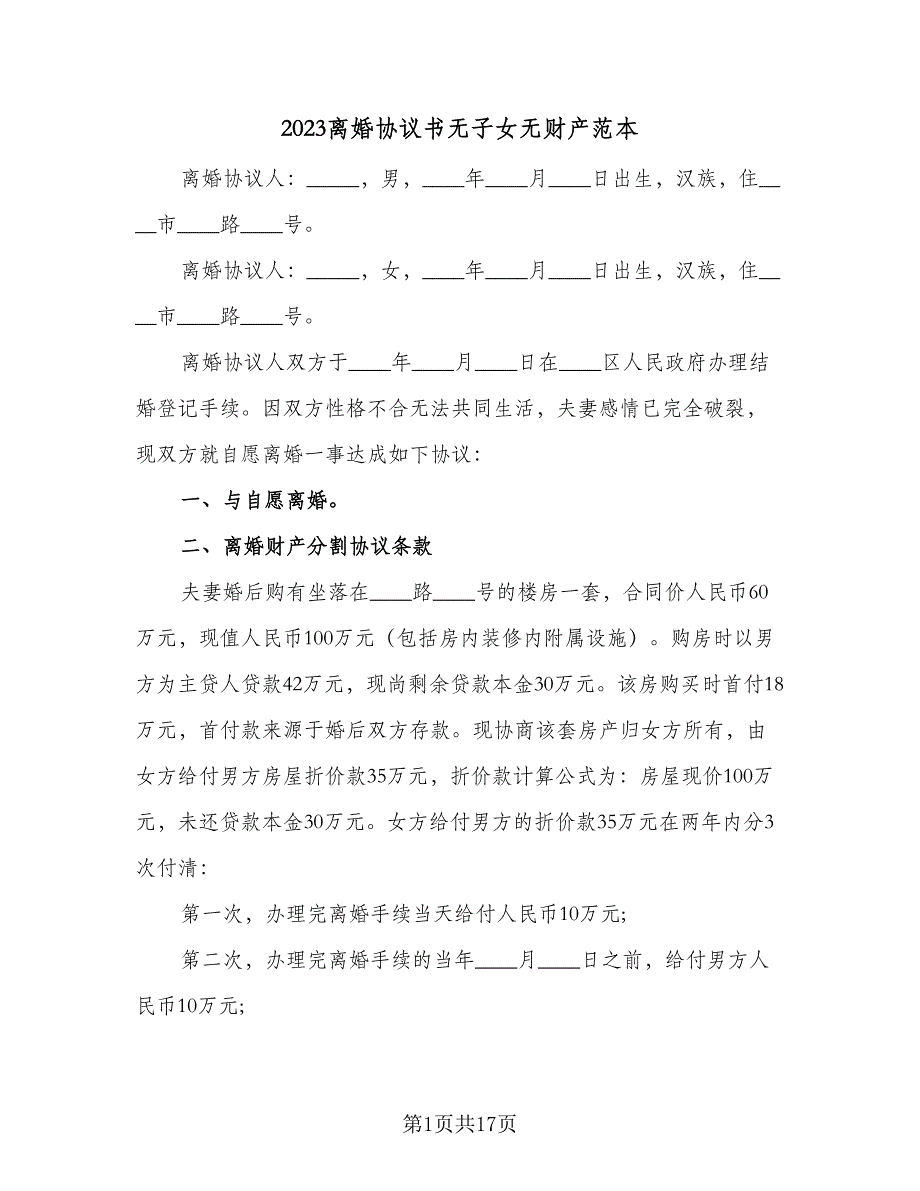 2023离婚协议书无子女无财产范本
离婚协议人：_____，男，____年____月____日出生，汉族，住__
__市____路____号。
离婚协议人：_____，女，____年____月____日出生，汉族，住__
__市____路____号。
离婚协议人双方于____年____月____日在____区人民政府办理结
婚登记手续。因双方性格不合无法共同生活，夫妻感情已完全破裂，
现双方就自愿离婚一事达成如下协议：
一、与自愿离婚。
二、离婚财产分割协议条款
夫妻婚后购有坐落在____路____号的楼房一套，合同价人民币60
万元，现值人民币100万元（包括房内装修内附属设施）。购房时以男
方为主贷人贷款42万元，现尚剩余贷款本金30万元。该房购买时首付18
万元，首付款来源于婚后双方存款。现协商该套房产归女方所有，由
女方给付男方房屋折价款35万元，折价款计算公式为：房屋现价100万
元，未还贷款本金30万元。女方给付男方的折价款35万元在两年内分3
次付清：
第一次，办理完离婚手续当天给付人民币10万元;
第二次，办理完离婚手续的当年____月____日之前，给付男方人
民币10万元;
第1页共17页